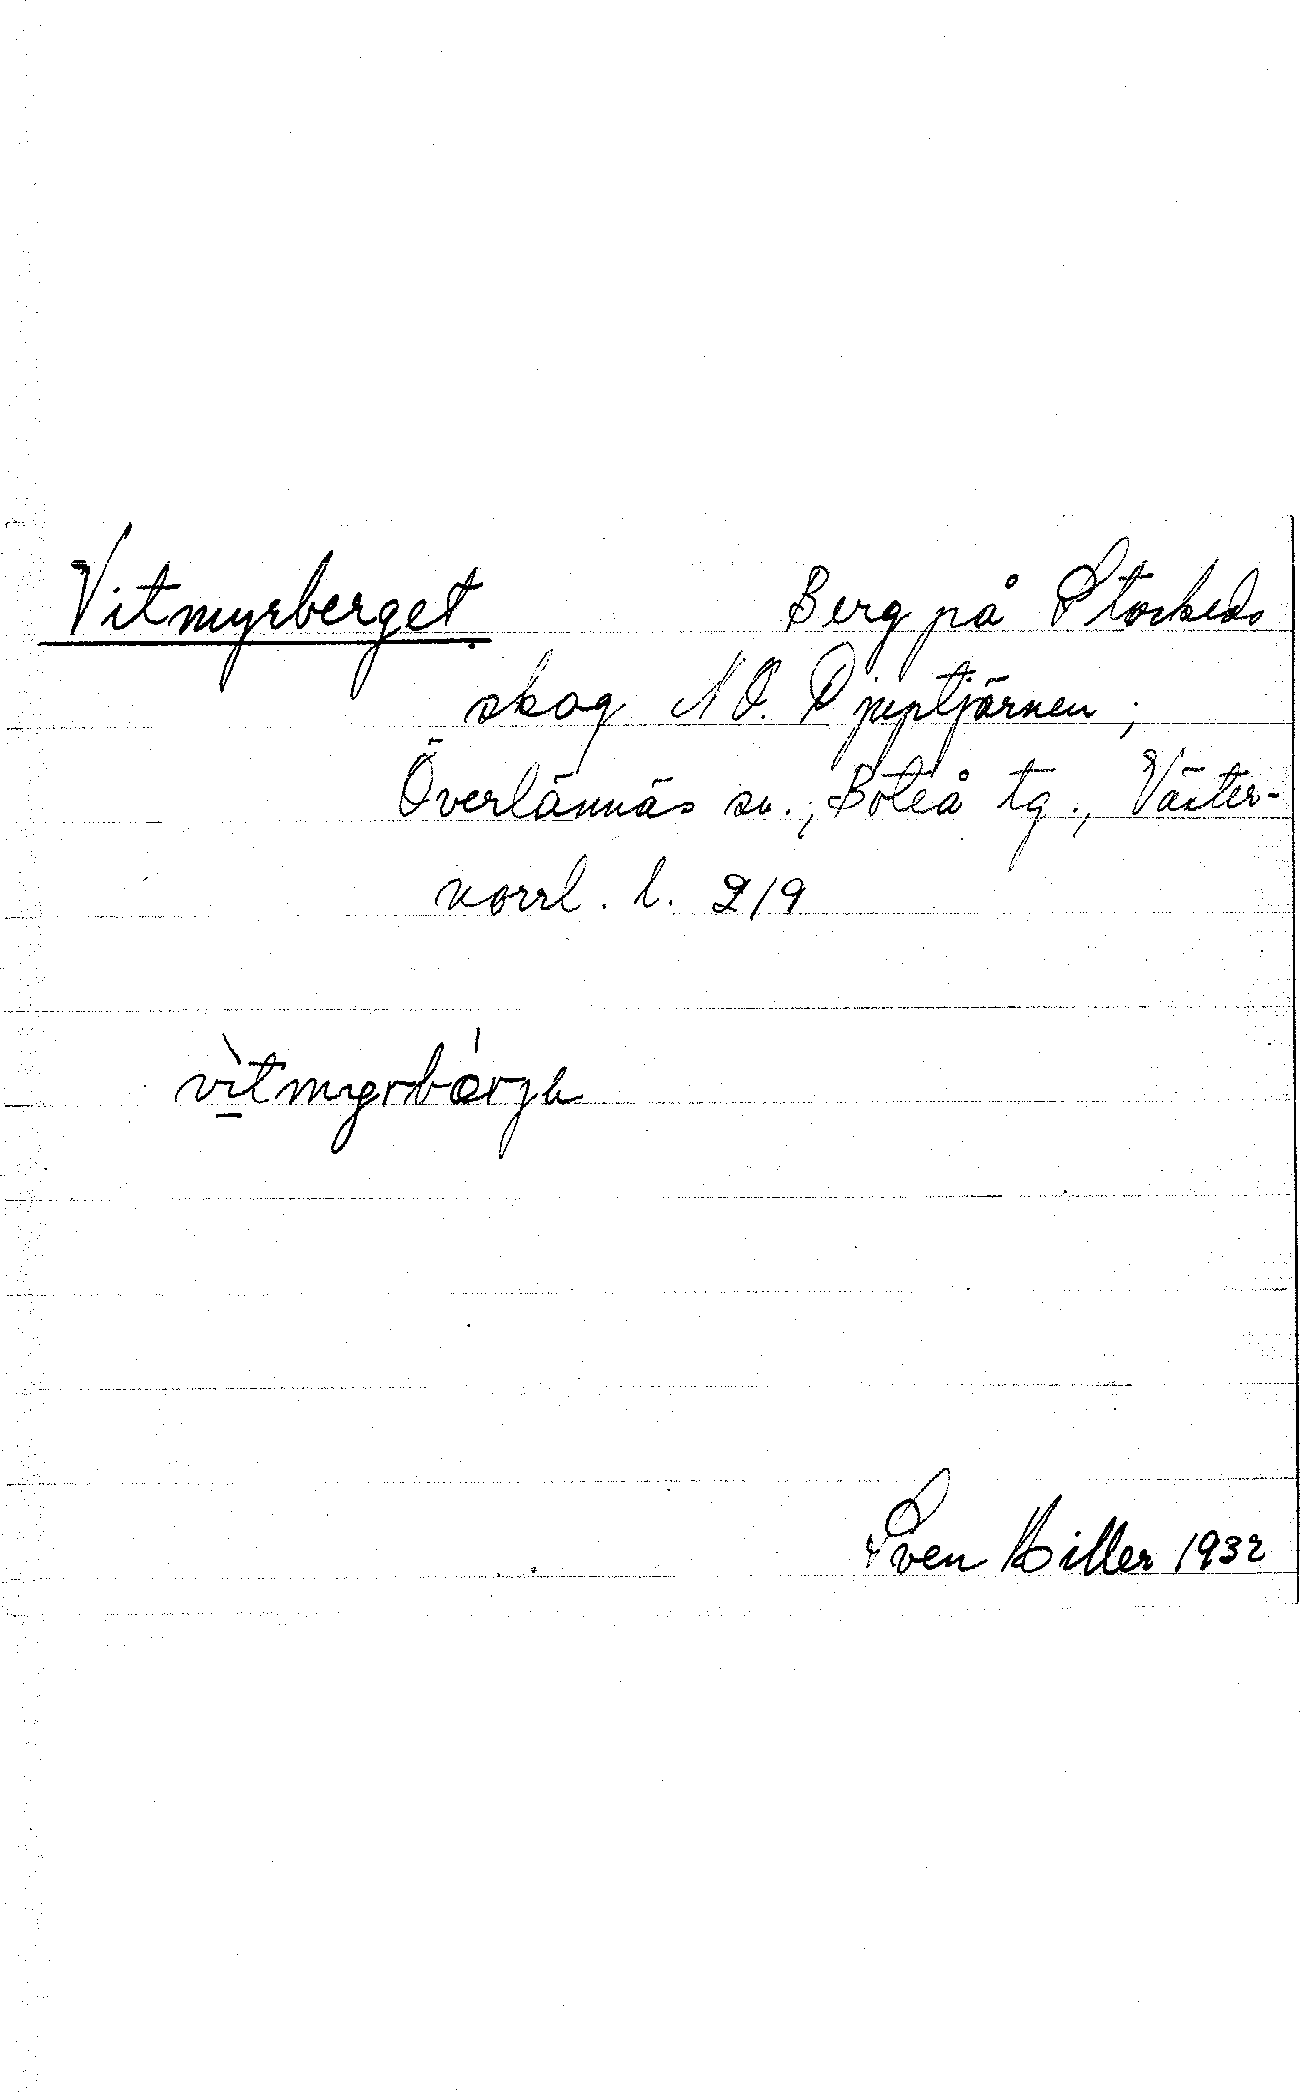 Vitmyrberget Berg på Storkeds
skog NO. Djuptjärnen;
Överlännäs sn., Boteå tg., Väster-
norrl. l. 219
vìtmyrbárja
Sven Hiller 1932